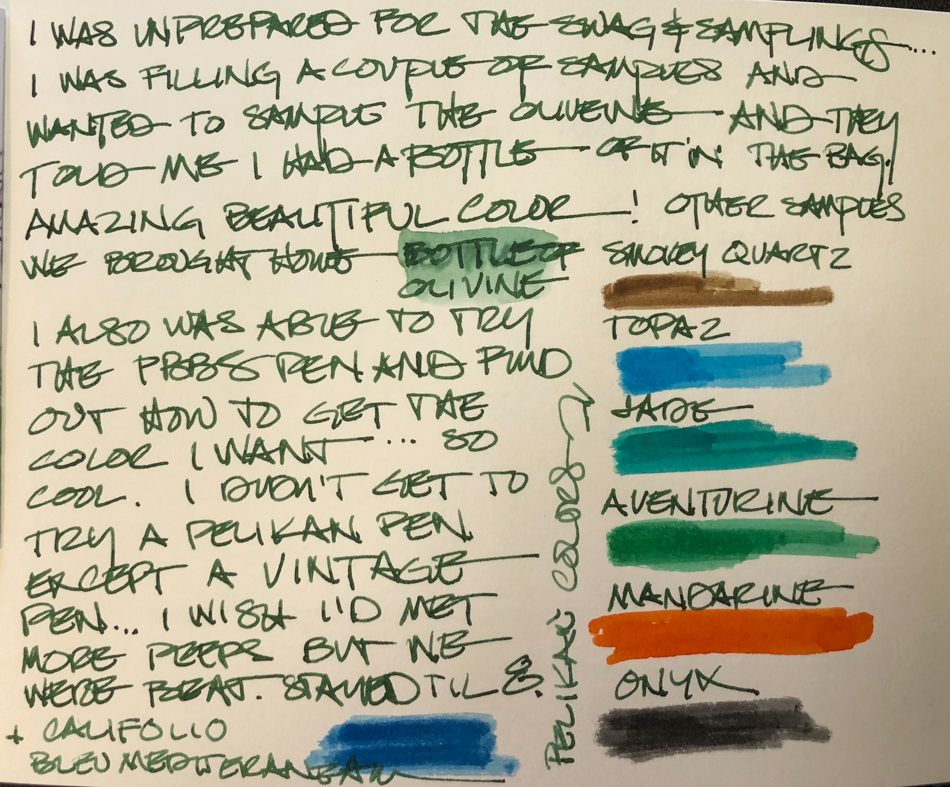 I WAS UNPREPARED FOR THE SWAG & SAMPLINGS...
I WAS FILLING A COUPLE OF SAMPLES AND
WANTED TO SAMPLE THE OLIVEINE AND THEY
TOLD ME I HAD A BOTTLE OF IT IN THE BAG.
AMAZING BEAUTIFUL COLOR! OTHER SAMPLES
WE BROUGHT HOME BOTTLE OF
OLIVINE
I ALSO WAS ABLE TO TRY
THE PBBS PEN AND FIND
OUT HOW TO GET THE
COLOR I WANT ... SO
COOL. I DIDN'T GET TO
TRY A PELIKAN PEN
EXCEPT A VINTAGE
PEN... I WISH I'D MET
MORE PEEPS BUT WE
WERE BEAT. STAYED TIL 8.
+ CALIFOLIO
BLEU MEDITERANEAN
PELIKAN COLORS
SMOKEY QUARTZ
TOPAZ
JADE
AVENTURINE
MANDARINE
ONYX